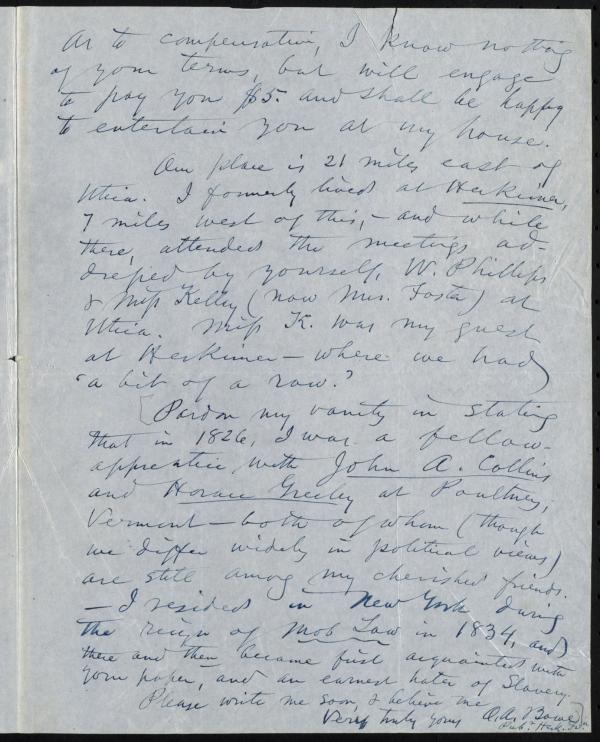 As to compensation, I know nothing
of your terms, but will engage
to pay you $5. and shall be happy
to entertain you at my house.
Our place is 21 miles east of
Utica. I formerly lived at Herkimer,
7 miles west of this, – and while
there, attended the meetings ad-
dressed by yourself, W. Phillips
& Miss Kelley (now Mrs. Foster) at
Utica. Miss K. was my guest
at Herkimer – where we had
"a bit of a row."
[Pardon my vanity in stating
that in 1826, I was a fellow-
apprentice with John A. Collins
and Horace Greeley at Poultney,
Vermont – both of whom (though
we differ widely in political views)
are still among my cherished friends.
– I resided in New York during
the reign of Mob Law in 1834, and
there and then became first acquainted with
your paper, and an earnest hater of Slavery.
Please write me soon, & believe me
Very truly yours O. A. Bowe
Pub. Herk.